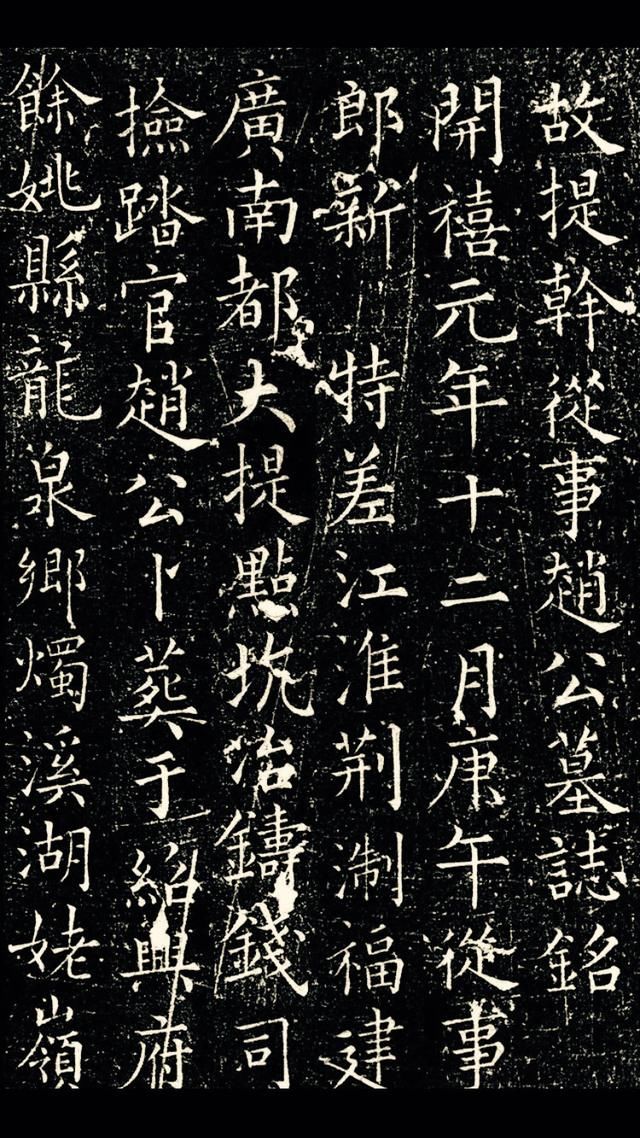 故提幹從事趙公墓誌銘
開禧元年十二月庚午從事
郎新 特差江淮荆淛福建
廣南都大提點坑冶鑄錢司
撿踏官趙公卜葬于紹興府
餘姚縣龍泉鄉燭溪湖姥嶺